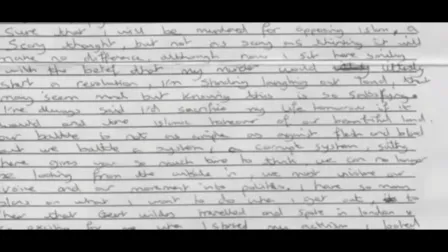 Sure that I will be murdered for opposing islam, a
scary thought, but not as scary as thinking it will
make no difference, although now I sit here smiling
with the belief that my murder would start
start a revolution, I'm laughing out loud, that
may seem mad but knowing this is so satisfying.
I've always said I'd sacrifice my life tomorrow if it
would islams of our beautiful land.
our battle is not as simple as against flesh and blood
but we battle a system, a corrupt system, sitting
here gives you so much time to think, we can no longer
be looking from the outside in, we must
and our movement into politics, I have so many
plans on what I want to do when I get out,
hear that Geert wilders travelled and spoke in london
for me when I started my activism, I looked